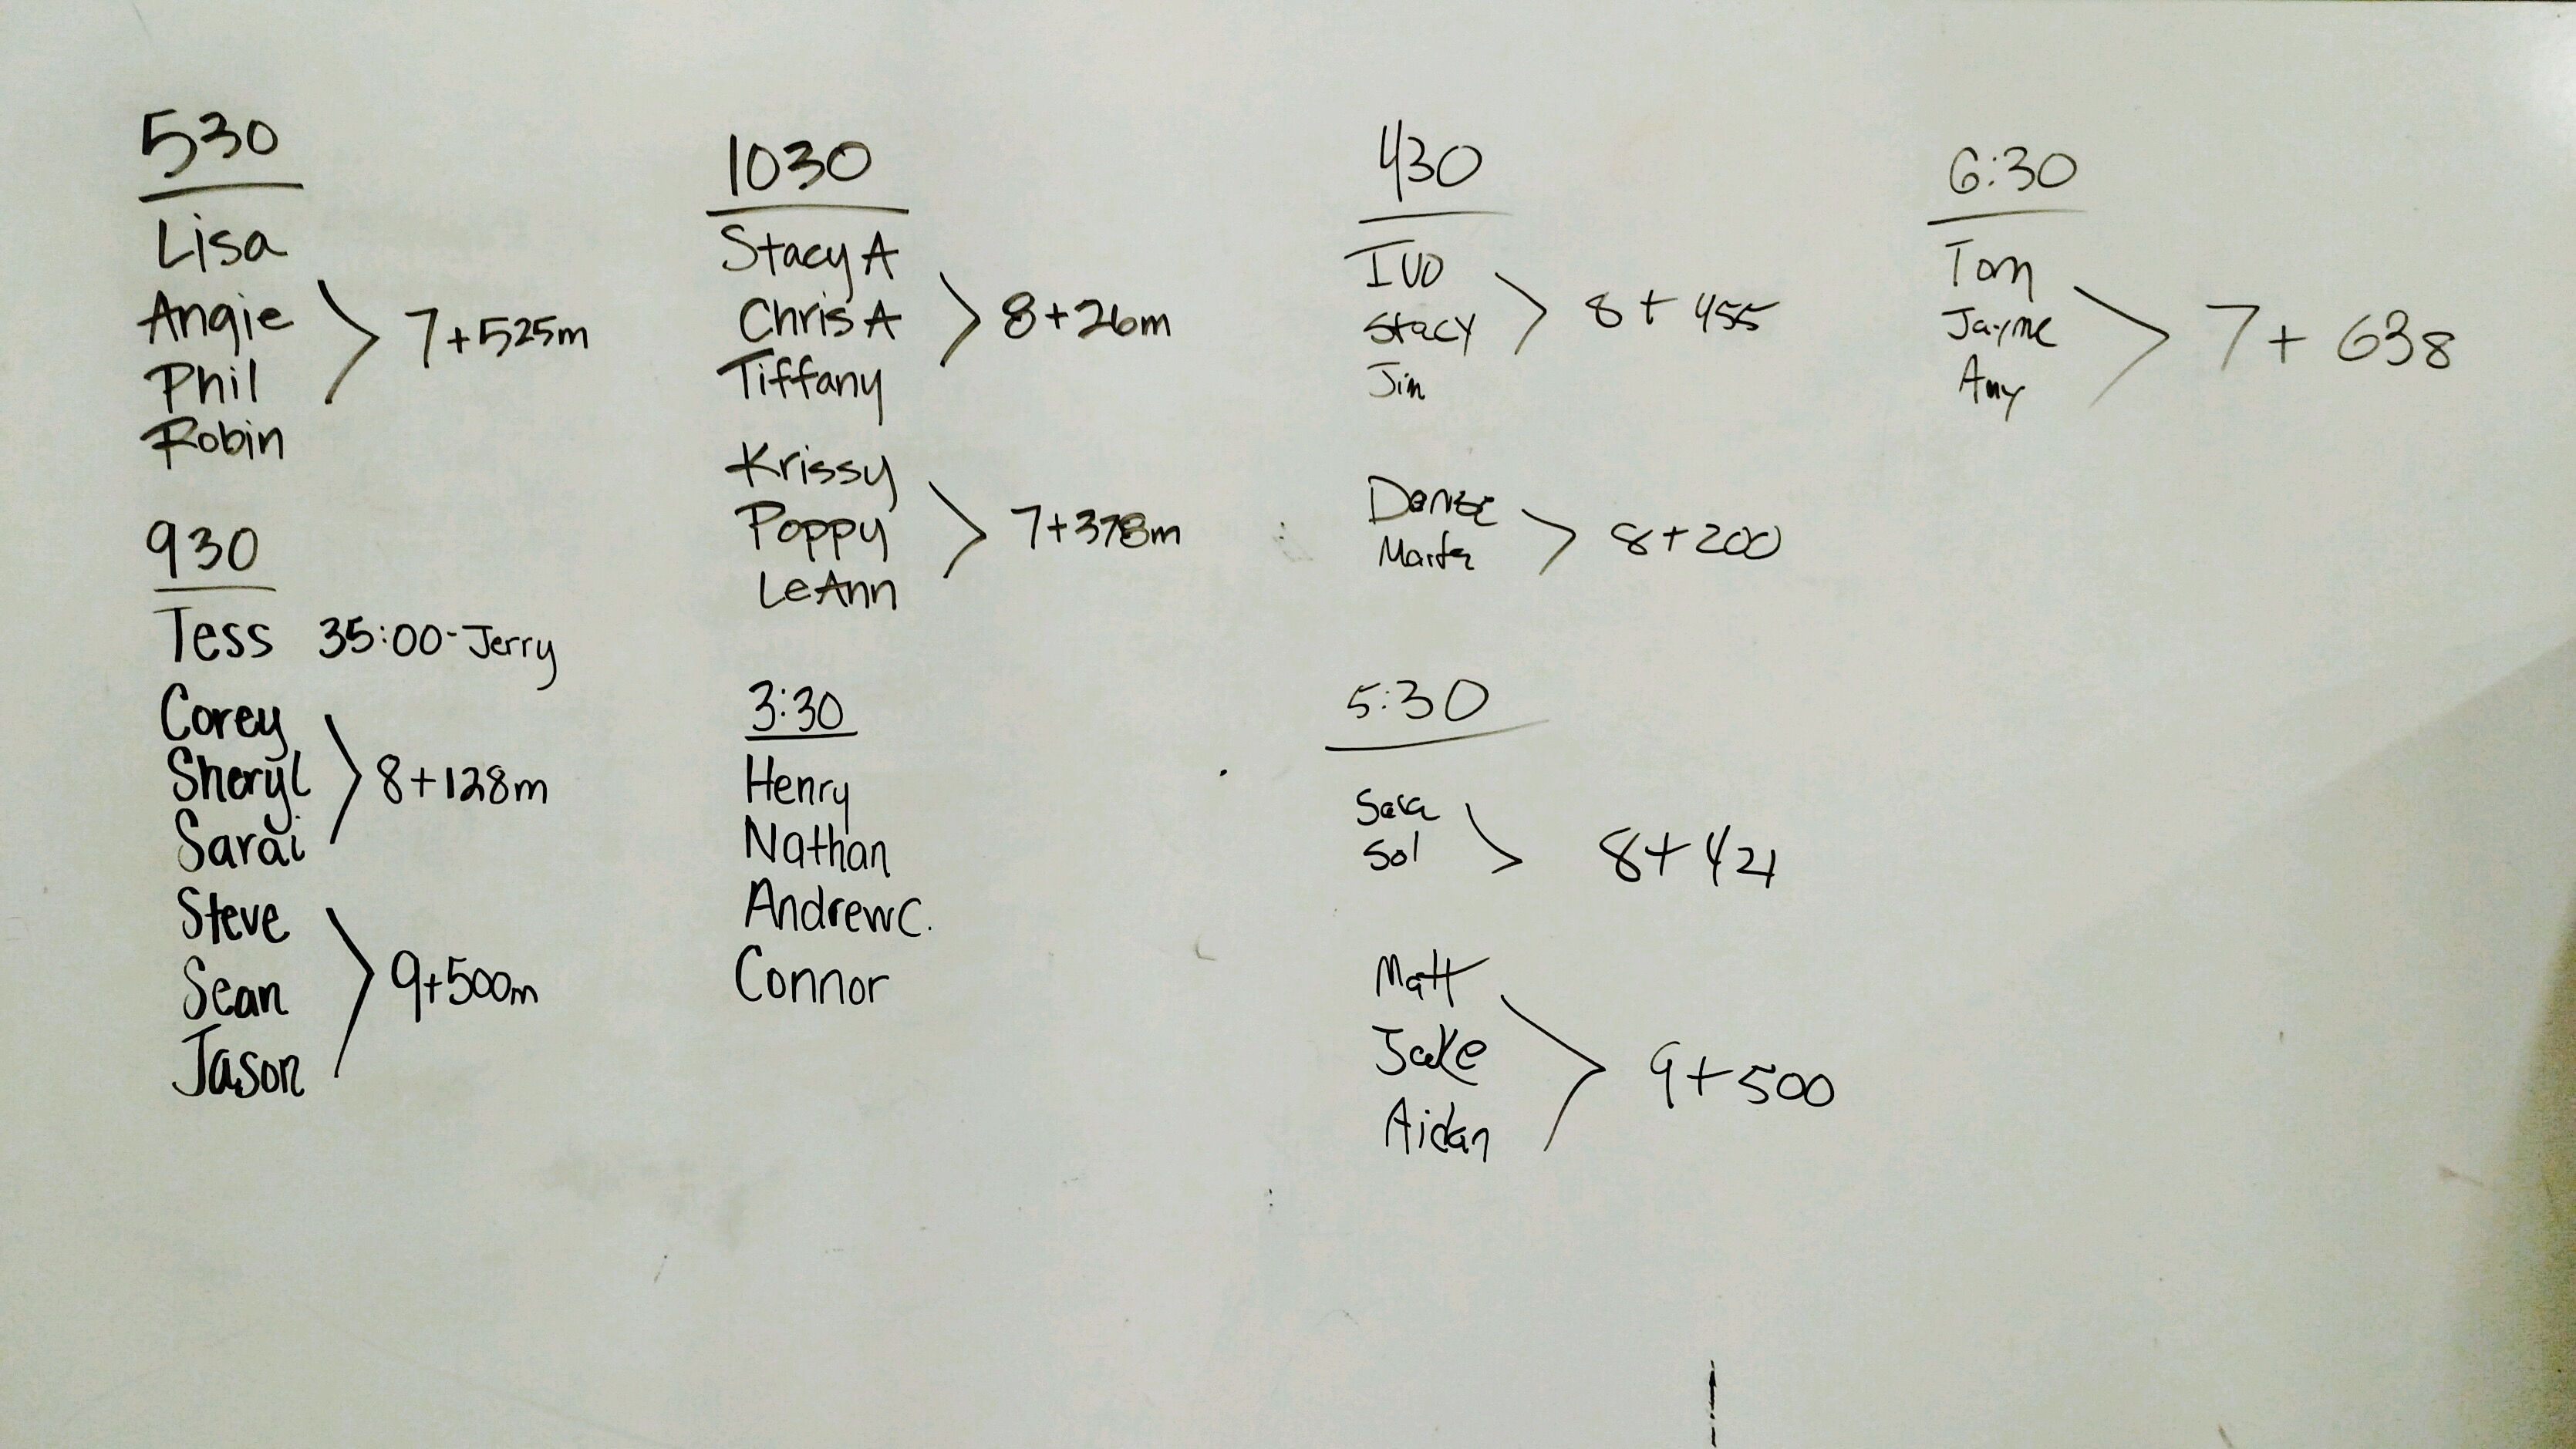 530
Lisa
Angie
Phil
Robin
7+525m
930
Tess 35:00-Jerry
Corey
Sheryl
Sarai
8+128m
Steve
Sean
Jason
9+500m
1030
Stacy A
Chris A
Tiffany
8+26m
Krissy
Poppy
LeAnn
7+378m
3:30
Henry
Nathan
Andrew C.
Connor
430
Ivo
Stacy
Jim
8+455
Denise
8+200
5:30
Sara
Sol
8+421
Matt
Jake
Aidan
9+500
6:30
Tom
Jayme
Amy
7+638